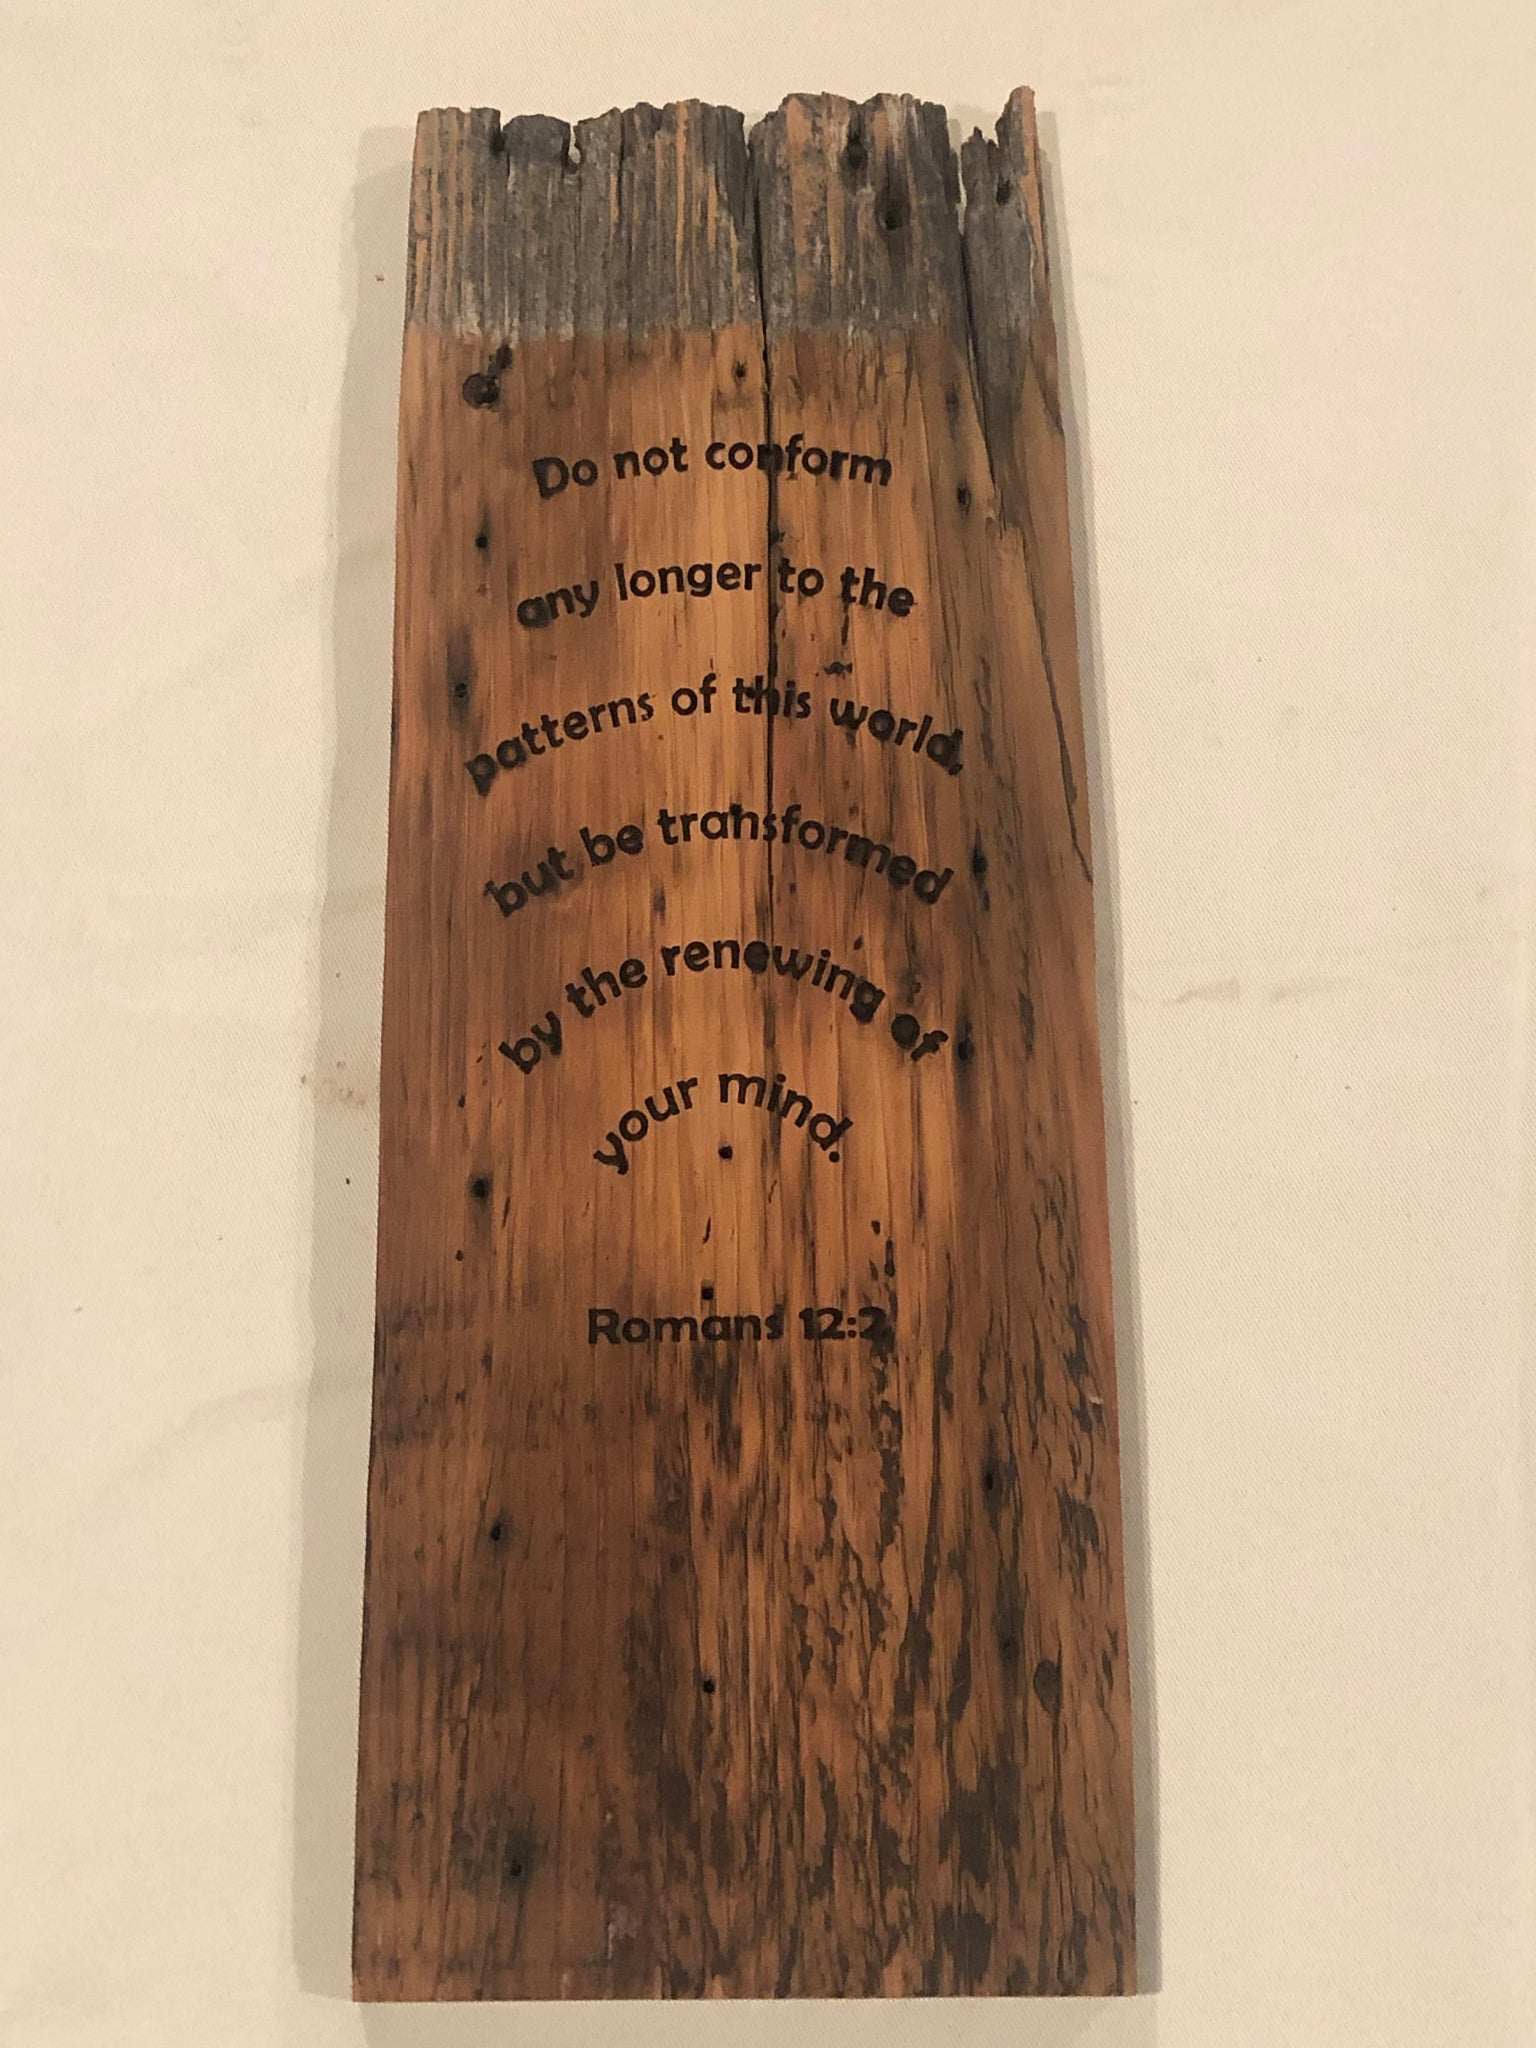 Do not conform
any longer to the
patterns of this world,
but be transformed
by the renewing of
your mind.
Romans 12:2